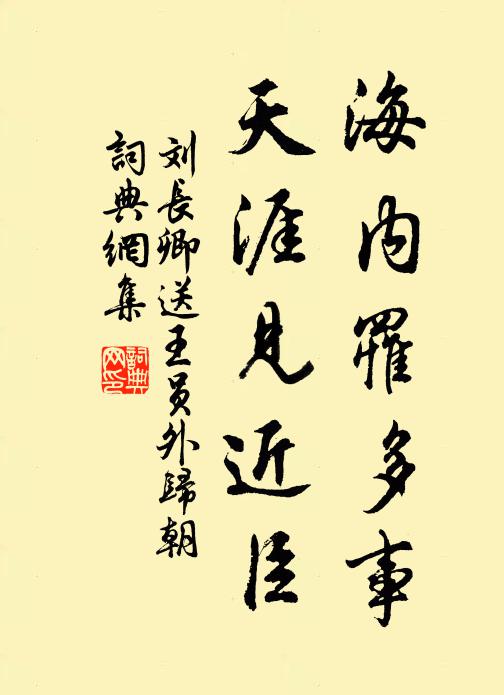 海内罹多事
天涯見近臣
刘長卿送王員外歸朝
詞典網集
詞典网印